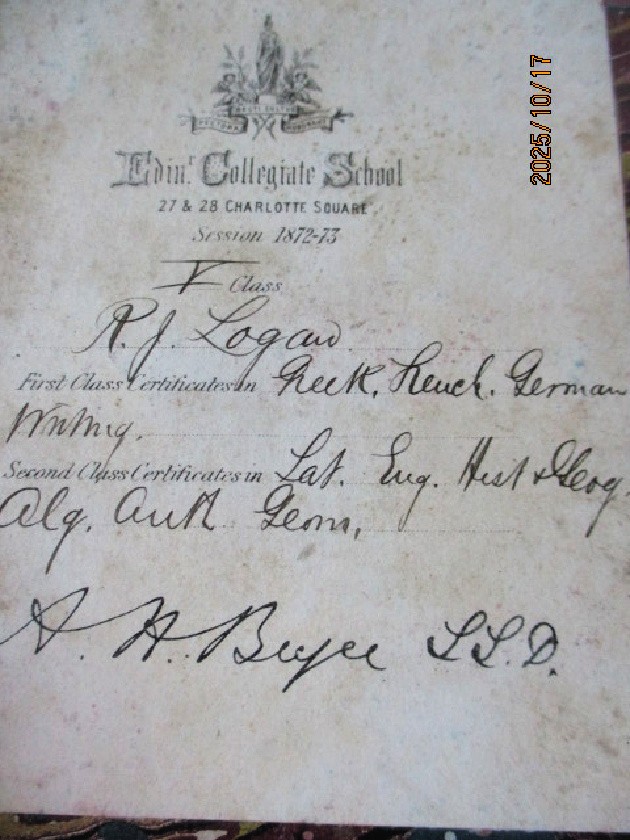 Edinr. Collegiate School
27 & 28 CHARLOTTE SQUARE
Session 1872-73
V Class
R. J. Logan
First Class Certificates in Greek, French. German
Writing.
Second Class Certificates in Lat. Eng. Hist & Geog.
Alg. Arith Geom,
A. H. Bryce LL.D.
2025/10/17